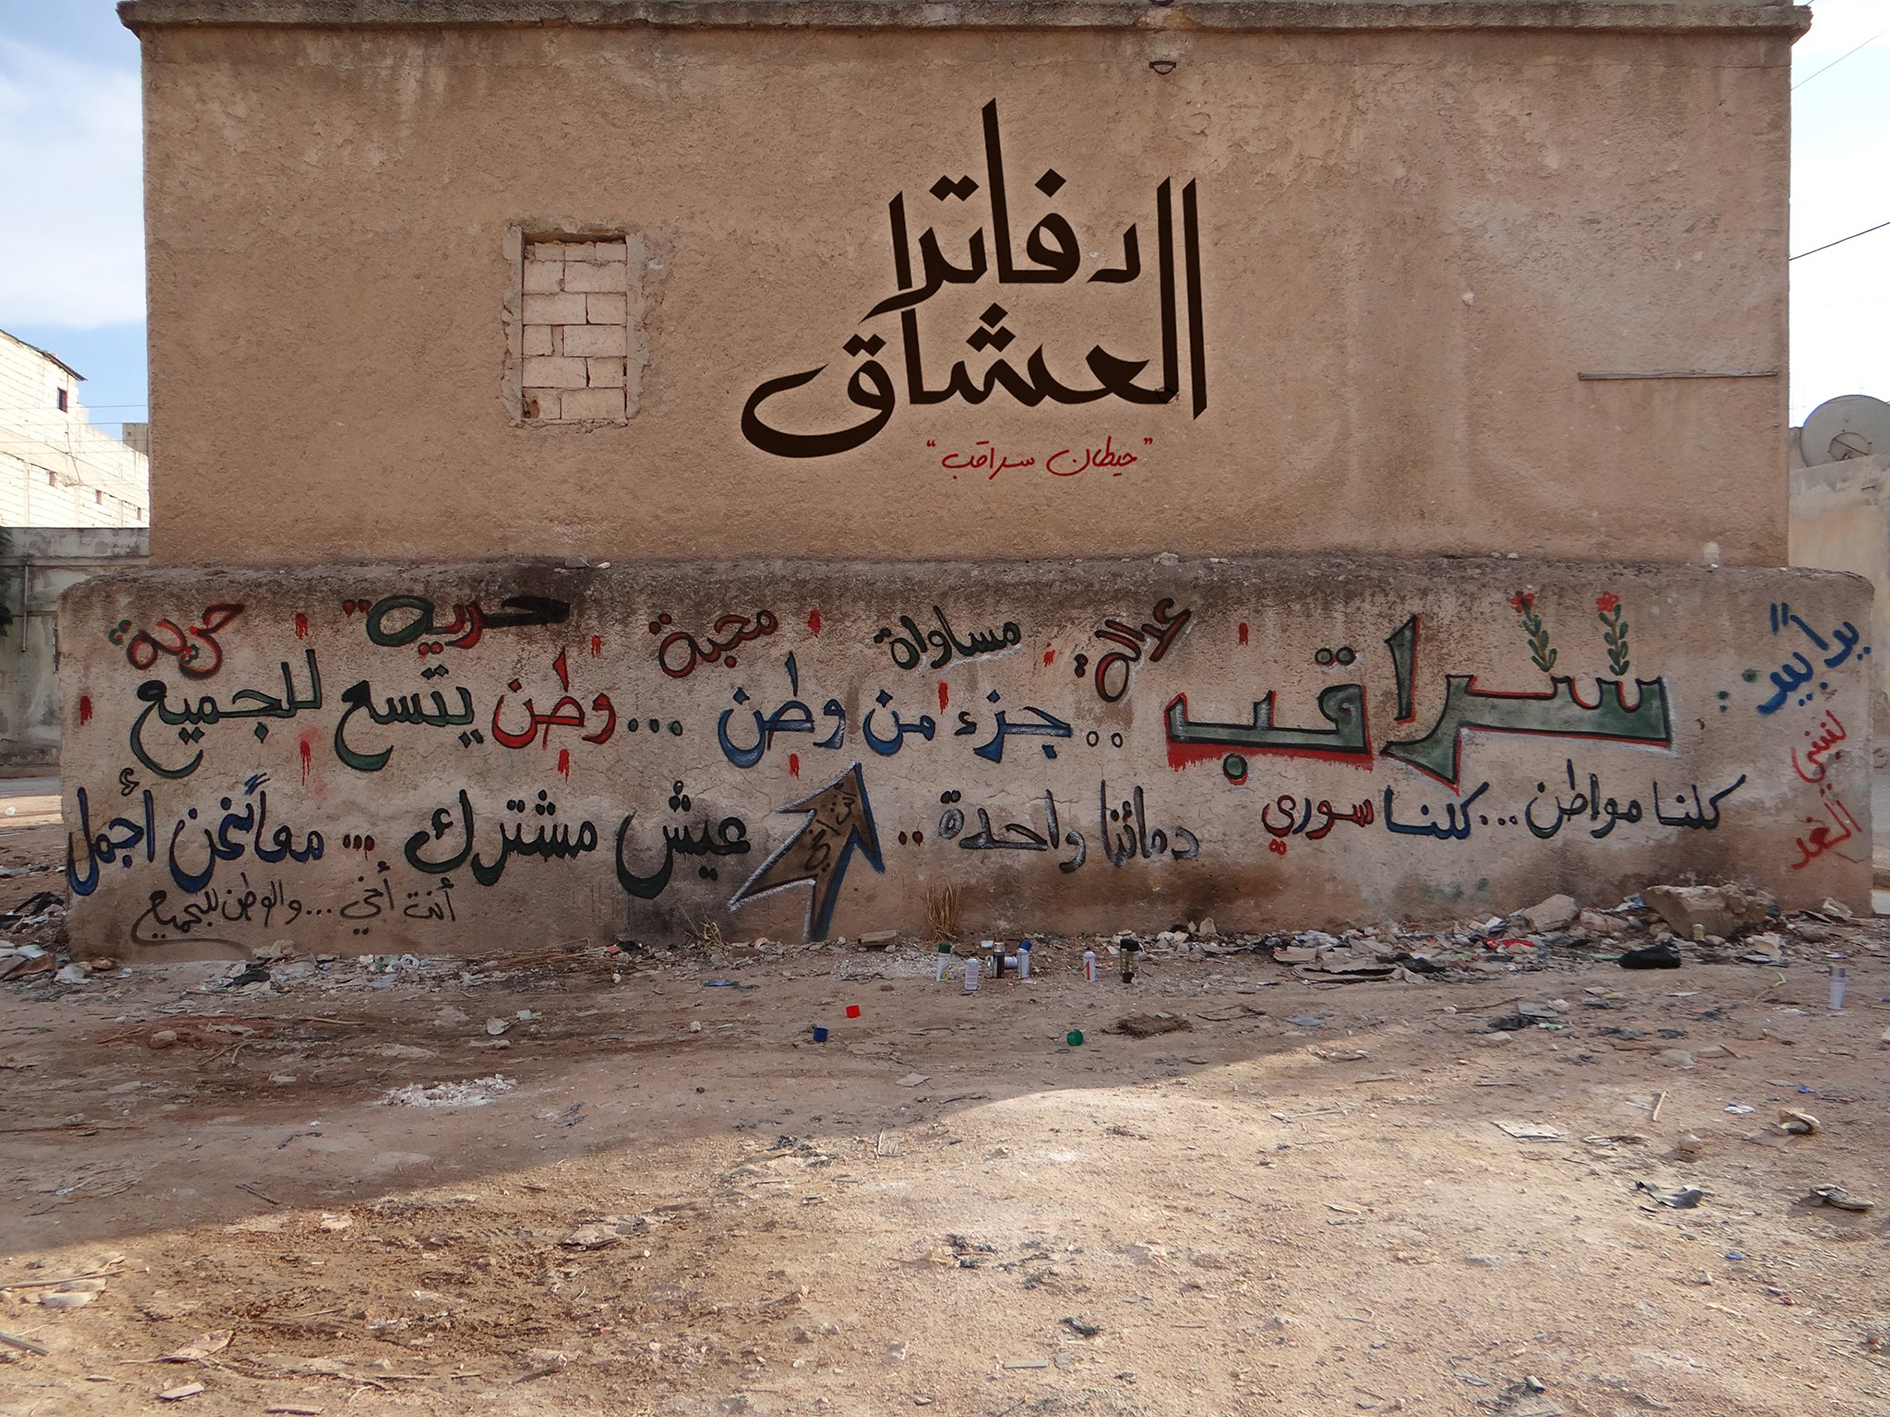 دفاتر
العشاق
"حيطان سراقب"
عدالة مساواة محبة حرية حرية
سراقب .. جزء من وطن ... وطن يتسع للجميع
كلنا مواطن ... كلنا سوري
دمائنا واحدة .. عيش مشترك ... معاً نحن أجمل
أنت أخي
أنت أخي ... والوطن للجميع
يداً بيد
لنبني
الغد